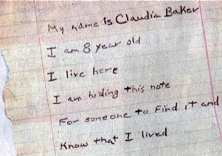 My name Is Claudia Baker
I am 8 year old
I live here
I am hiding this note
For someone to Find it and
Know that I lived